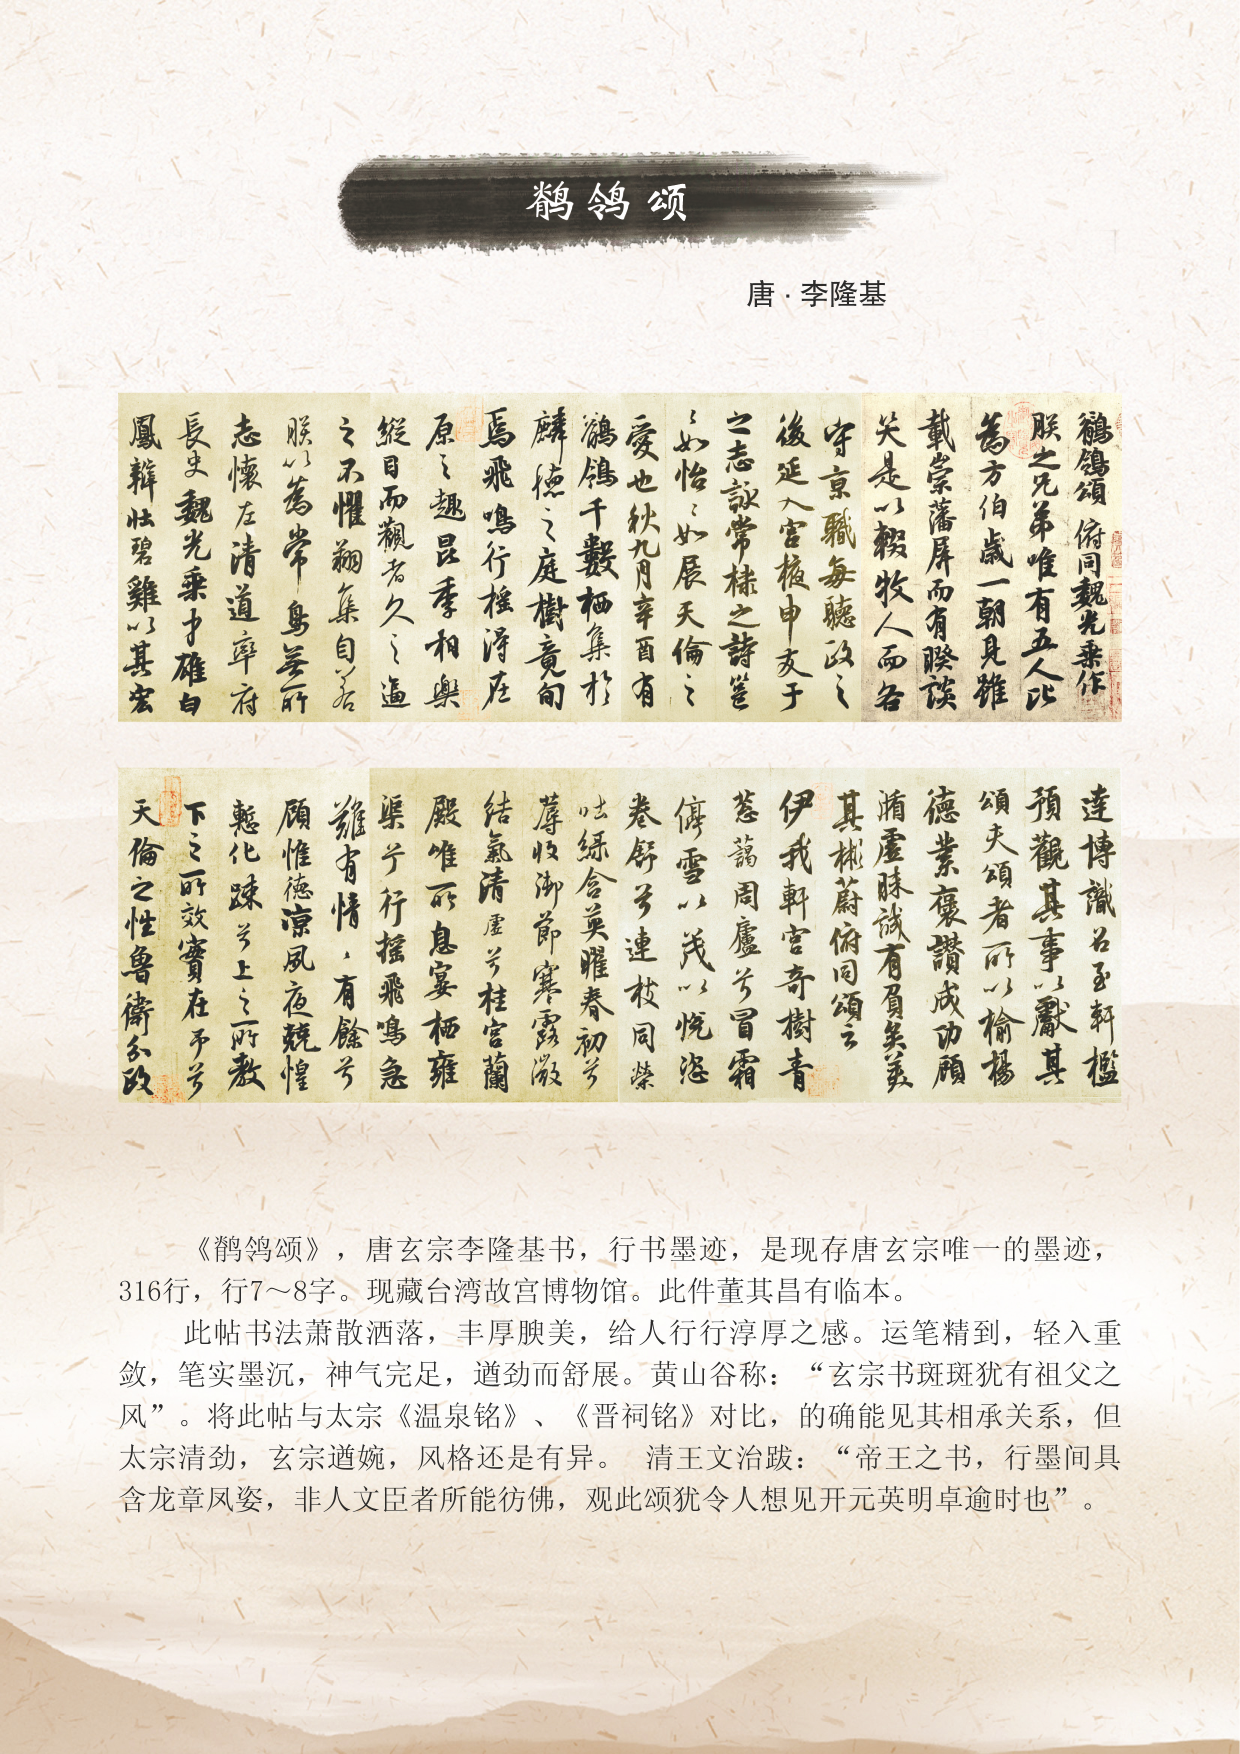 鹡鸰颂
唐·李隆基
鶺鴒頌 俯同魏光乘作
朕之兄弟唯有五人比
為方伯歲一朝見雖
載崇藩屏而有睽談
笑是以輟牧人而各
守京職每聽政之
後延入宮掖申友于
之志詠常棣之詩邕
〻如怡〻如展天倫之
愛也秋九月辛酉有
鶺鴒千數栖集於
麟德之庭樹竟旬
焉飛鳴行搖得在
原之趣昆季相樂
縱目而觀者久之逼
之不懼翔集自若
朕以為常鳥無所
志懷左清道率府
長史魏光乘才雄白
鳳辯壯碧雞以其宏
達博識召至軒檻
預觀其事以獻其
頌夫頌者所以揄揚
德業褒讚成功顧
循虛昧誠有負矣美
其彬蔚俯同頌云
伊我軒宮奇樹青
蔥藹周廬兮冒霜
停雪以茂以悅恣
卷舒兮連枝同榮
吐綠含英曜春初兮
蓐收御節寒露微
結氣清虛兮桂宮蘭
殿唯所息宴栖雍
渠兮行搖飛鳴急
難有情〻有餘兮
顧惟德涼夙夜兢惶
慙化踈兮上之所教
下之所效實在予兮
天倫之性魯衛分政
《鹡鸰颂》，唐玄宗李隆基书，行书墨迹，是现存唐玄宗唯一的墨迹，
316行，行7～8字。现藏台湾故宫博物馆。此件董其昌有临本。
此帖书法萧散洒落，丰厚腴美，给人行行淳厚之感。运笔精到，轻入重
敛，笔实墨沉，神气完足，遒劲而舒展。黄山谷称：“玄宗书斑斑犹有祖父之
风”。将此帖与太宗《温泉铭》、《晋祠铭》对比，的确能见其相承关系，但
太宗清劲，玄宗遒婉，风格还是有异。 清王文治跋：“帝王之书，行墨间具
含龙章凤姿，非人文臣者所能彷佛，观此颂犹令人想见开元英明卓逾时也”。